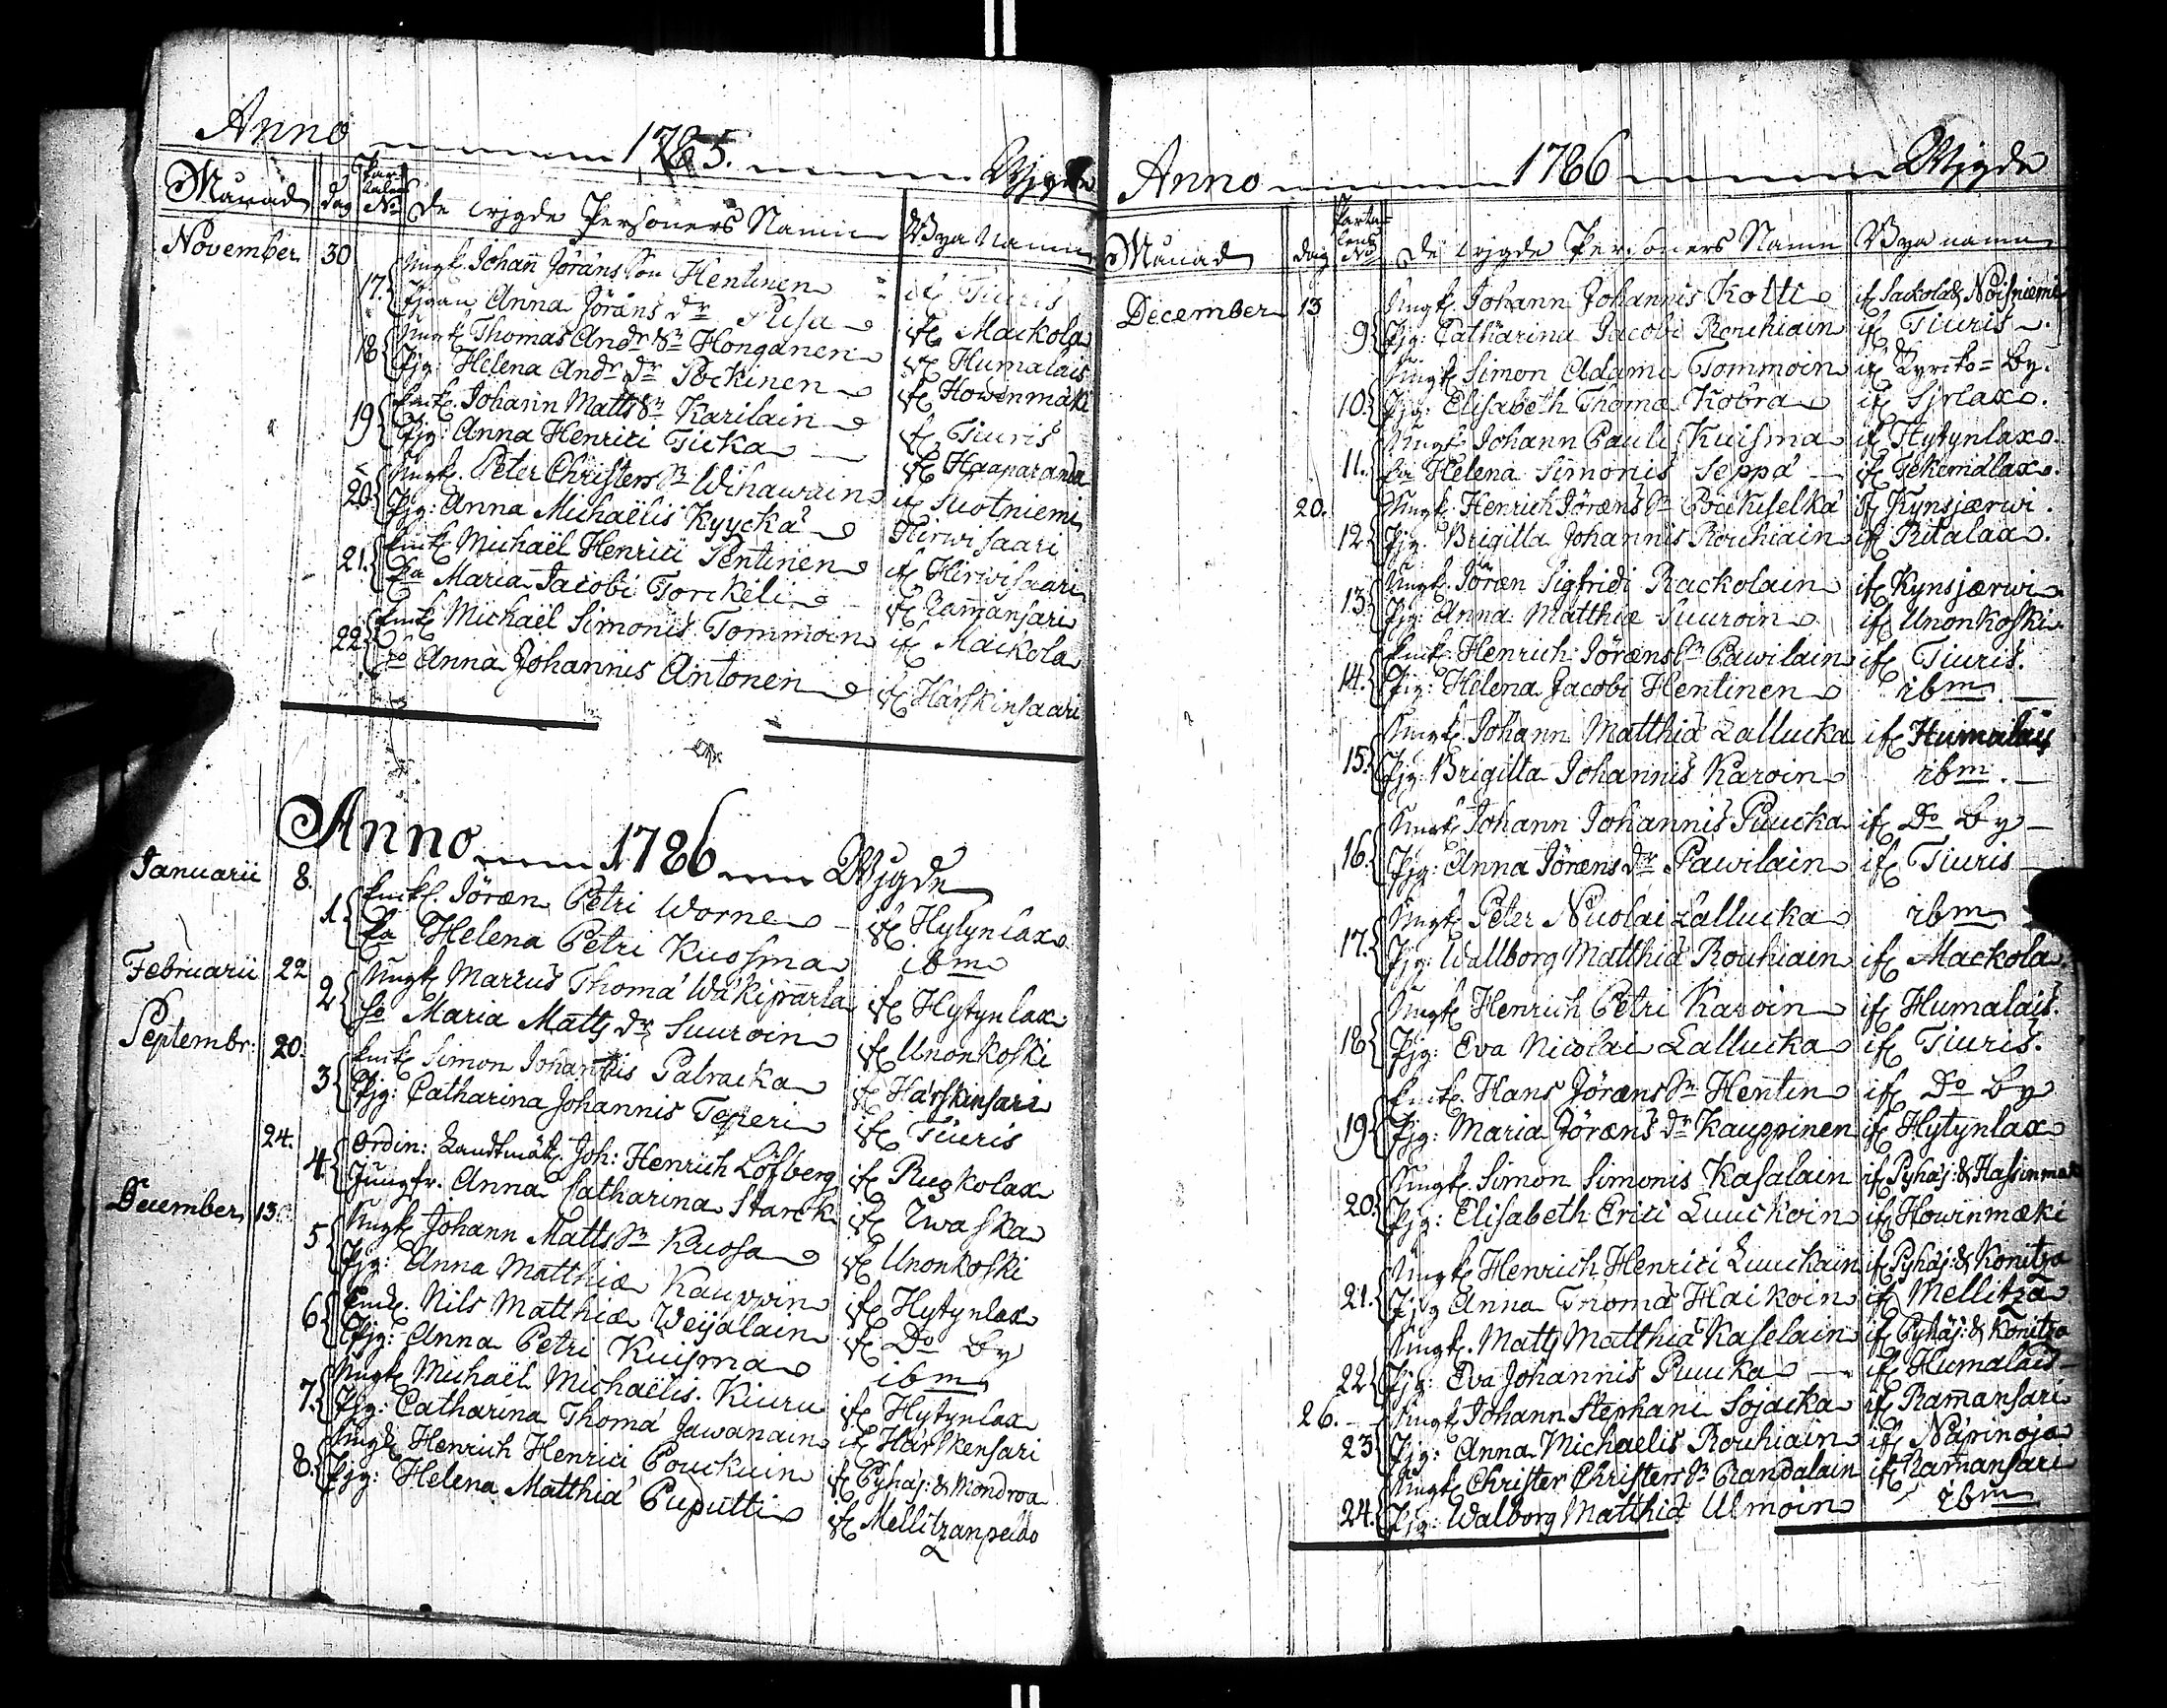 Anno 1785. Wigde
Månad dag Par talens No De wigde Personers Namn Bya Namn
November 30
17. Ungk. Johan Jörans Son Hentinen if. Tiuris
Pigan Anna Jörans dr Pusa if. Mackola
18 Ungk. Thomas Andr. Sn Honganen if. Humalais
Pig: Helena Andr. dr Pöckinen if. Howinmäki
19 Enk. Johann Matts Sn Karilain if. Tiuris
Pig: Anna Henrici Ticka if. Haaparanda
20. Ungk. Peter Christers Sn Wihawain if. Suotniemi
Pig: Anna Michaëlis Kyyckä Hirwisaari
21. Enk. Michaël Henrici Pentinen if. Hirwisaari
Ea Maria Jacobi Torckeli if. Ramansari
22. Enk. Michaël Simonis Tommoin if. Mackola
Anna Johannis Antonen if. Härskinsaari
Anno 1786 Wigde
Januarii 8.
1 Enkl. Jören Petri Worne if. Hytynlax
Ea Helena Petri Kuosma ibm
Februarii 22
2 Ungk. Marcus Thomæ Wäkipärla if. Hytynlax
Maria Matts dr Suuroin if. Unonkoski
Septembr: 20.
3 Enk. Simon Johannis Palvacka if. Härskinsari
Pig: Catharina Johannis Teperi if. Tiuris
24.
4 Ordin: Landtmät. Joh: Henrich Löfberg if. Ruokolax
Jungfr. Anna Catharina Starck if. Iwaska
December 13.
5 Ungk. Johann Matts Sn Kuosa if. Unonkoski
Pig: Anna Matthiæ Kauppin if. Hytynlax
6 Enk. Nils Matthiæ Weijalain if. Do By
Pig: Anna Petri Kuisma ibm
7. Ungk. Michaël Michaëlis Kiuru if. Hytynlax
Pig: Catharina Thomæ Jawanain if. Härskensari
8. Ungk. Henrich Henrici Pouckuin if. Pyhäj: & Mondroa
Pig: Helena Matthiæ Puputti if. Mellitzanpeldo
Anno 1786 Wigde
Månad dag Parta= lens No De wigde Personers Namn Bya namn
December 13
9 Ungk. Johann Johannis Kotti if. Sackola & Noisniemi
Pig: Catharina Jacobi Rouhiain if. Tiuris
10. Ungk. Simon Adami Tommoin if. Kyrcko= By.
Pig: Elisabeth Thomæ Kobra if. Sjrlax.
11. Ungk. Johann Pauli Kuisma if. Hytynlax.
Ea Helena Simonis Seppä if. Tekemälax.
20.
12. Ungk. Henrich Jörens Sn Pockiselkä if. Kynsjærwi.
Pig. Brigitta Johannis Rouhiain if. Ritalax.
13. Ungk. Jören Sigfridi Rackolain if. Kynsjærwi
Pig: Anna Matthiæ Suuroin if. Unonkoski
14. Enk. Henrich Jörens Sn Pawilain if. Tiuris.
Pig: Helena Jacobi Hentinen ibm.
15. Ungk. Johann Matthiæ Lallucka if. Humalais
Pig: Brigitta Johannis Karoin ibm.
16. Ungk. Johann Johannis Puucka if. Do By
Pig: Anna Jörens dr Pawilain if. Tiuris
17. Ungk. Peter Nicolai Lallucka ibm
Pig: Wallborg Matthiæ Rouhiain if. Mackola.
18 Ungk. Henrich Petri Karoin if. Humalais.
Pig: Eva Nicolai Lallucka if. Tiuris.
19 Enk. Hans Jörens Sn Hentin if. Do By
Pig: Maria Jörens dr Kauppinen if. Hytynlax
20. Ungk. Simon Simonis Kasalain if. Pyhäj: & Hassinmäki
Pig: Elisabeth Erici Luuckoin if. Howinmæki
21. Ungk. Henrich Henrici Luuckain if. Pyhäj: & Konitza
Pig Anna Thomæ Haikoin if. Mellitza
22 Ungk. Matts Matthiæ Kaselain if. Pyhäj: & Konitza
Pig: Eva Johannis Puucka if. Humalais
26.
23 Ungk. Johann Stephani Sojacka if. Ramansari
Pig: Anna Michaelis Rouhiain if. Närinoja
24. Ungk. Christer Christers Sn Randalain if. Ramansari
Pig: Walborg Matthiæ Ulmoin ibm